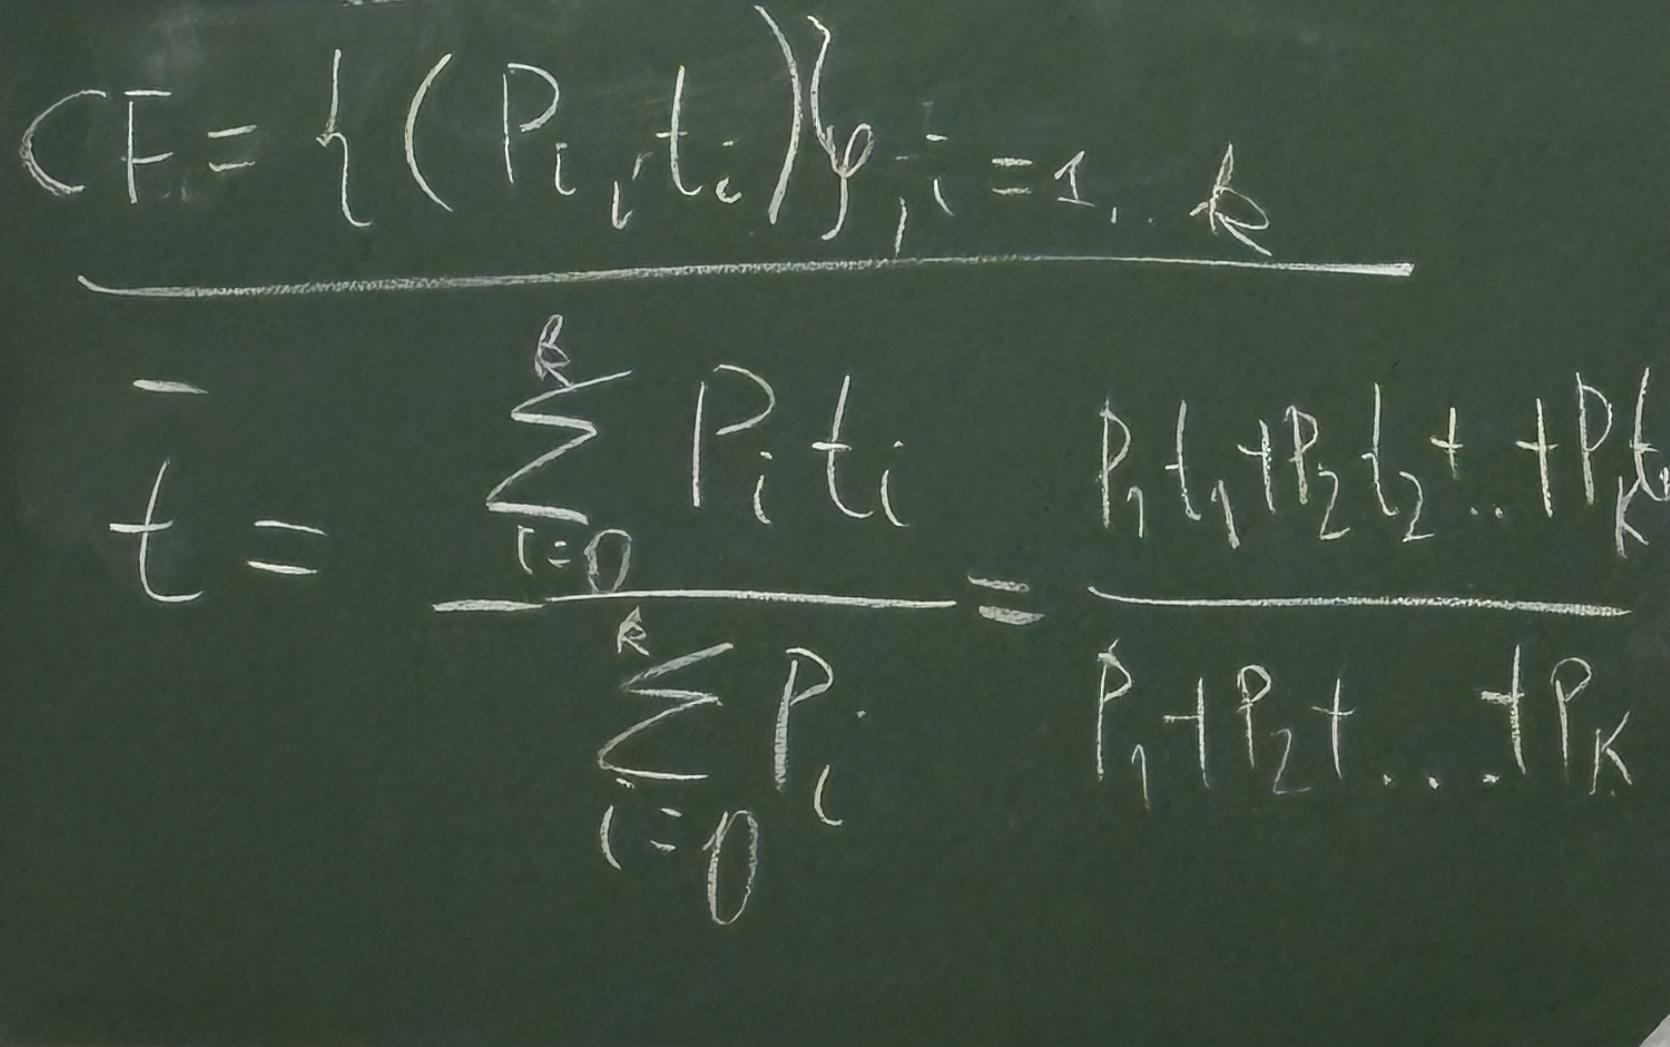 CF = {(P_i, t_i)}, i = 1, .. k
t̄ = (∑_{i=0}^{k} P_i t_i) / (∑_{i=0}^{k} P_i) = (P_1 t_1 + P_2 t_2 + .. + P_K t_K) / (P_1 + P_2 + .... + P_K)